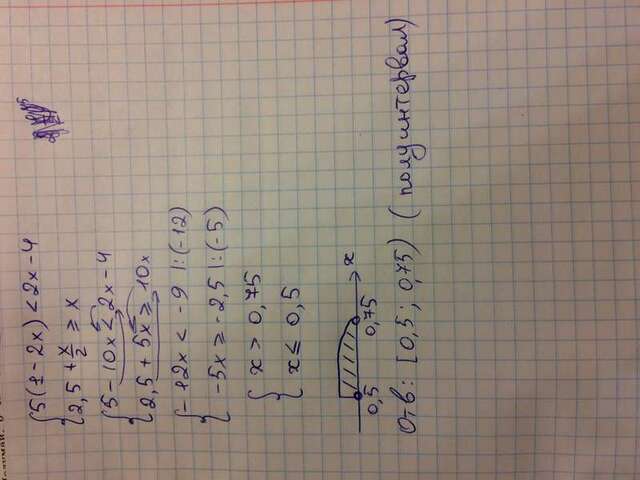 {5(1-2x) < 2x-4
{2,5 + x/2 ≥ x
{5-10x < 2x-4
{2,5 + 5x ≥ 10x
{-12x < -9 |:(-12)
{-5x ≥ -2,5 |:(-5)
{x > 0,75
{x ≤ 0,5
0,5 0,75 x
Отв: [0,5; 0,75) (полуинтервал)